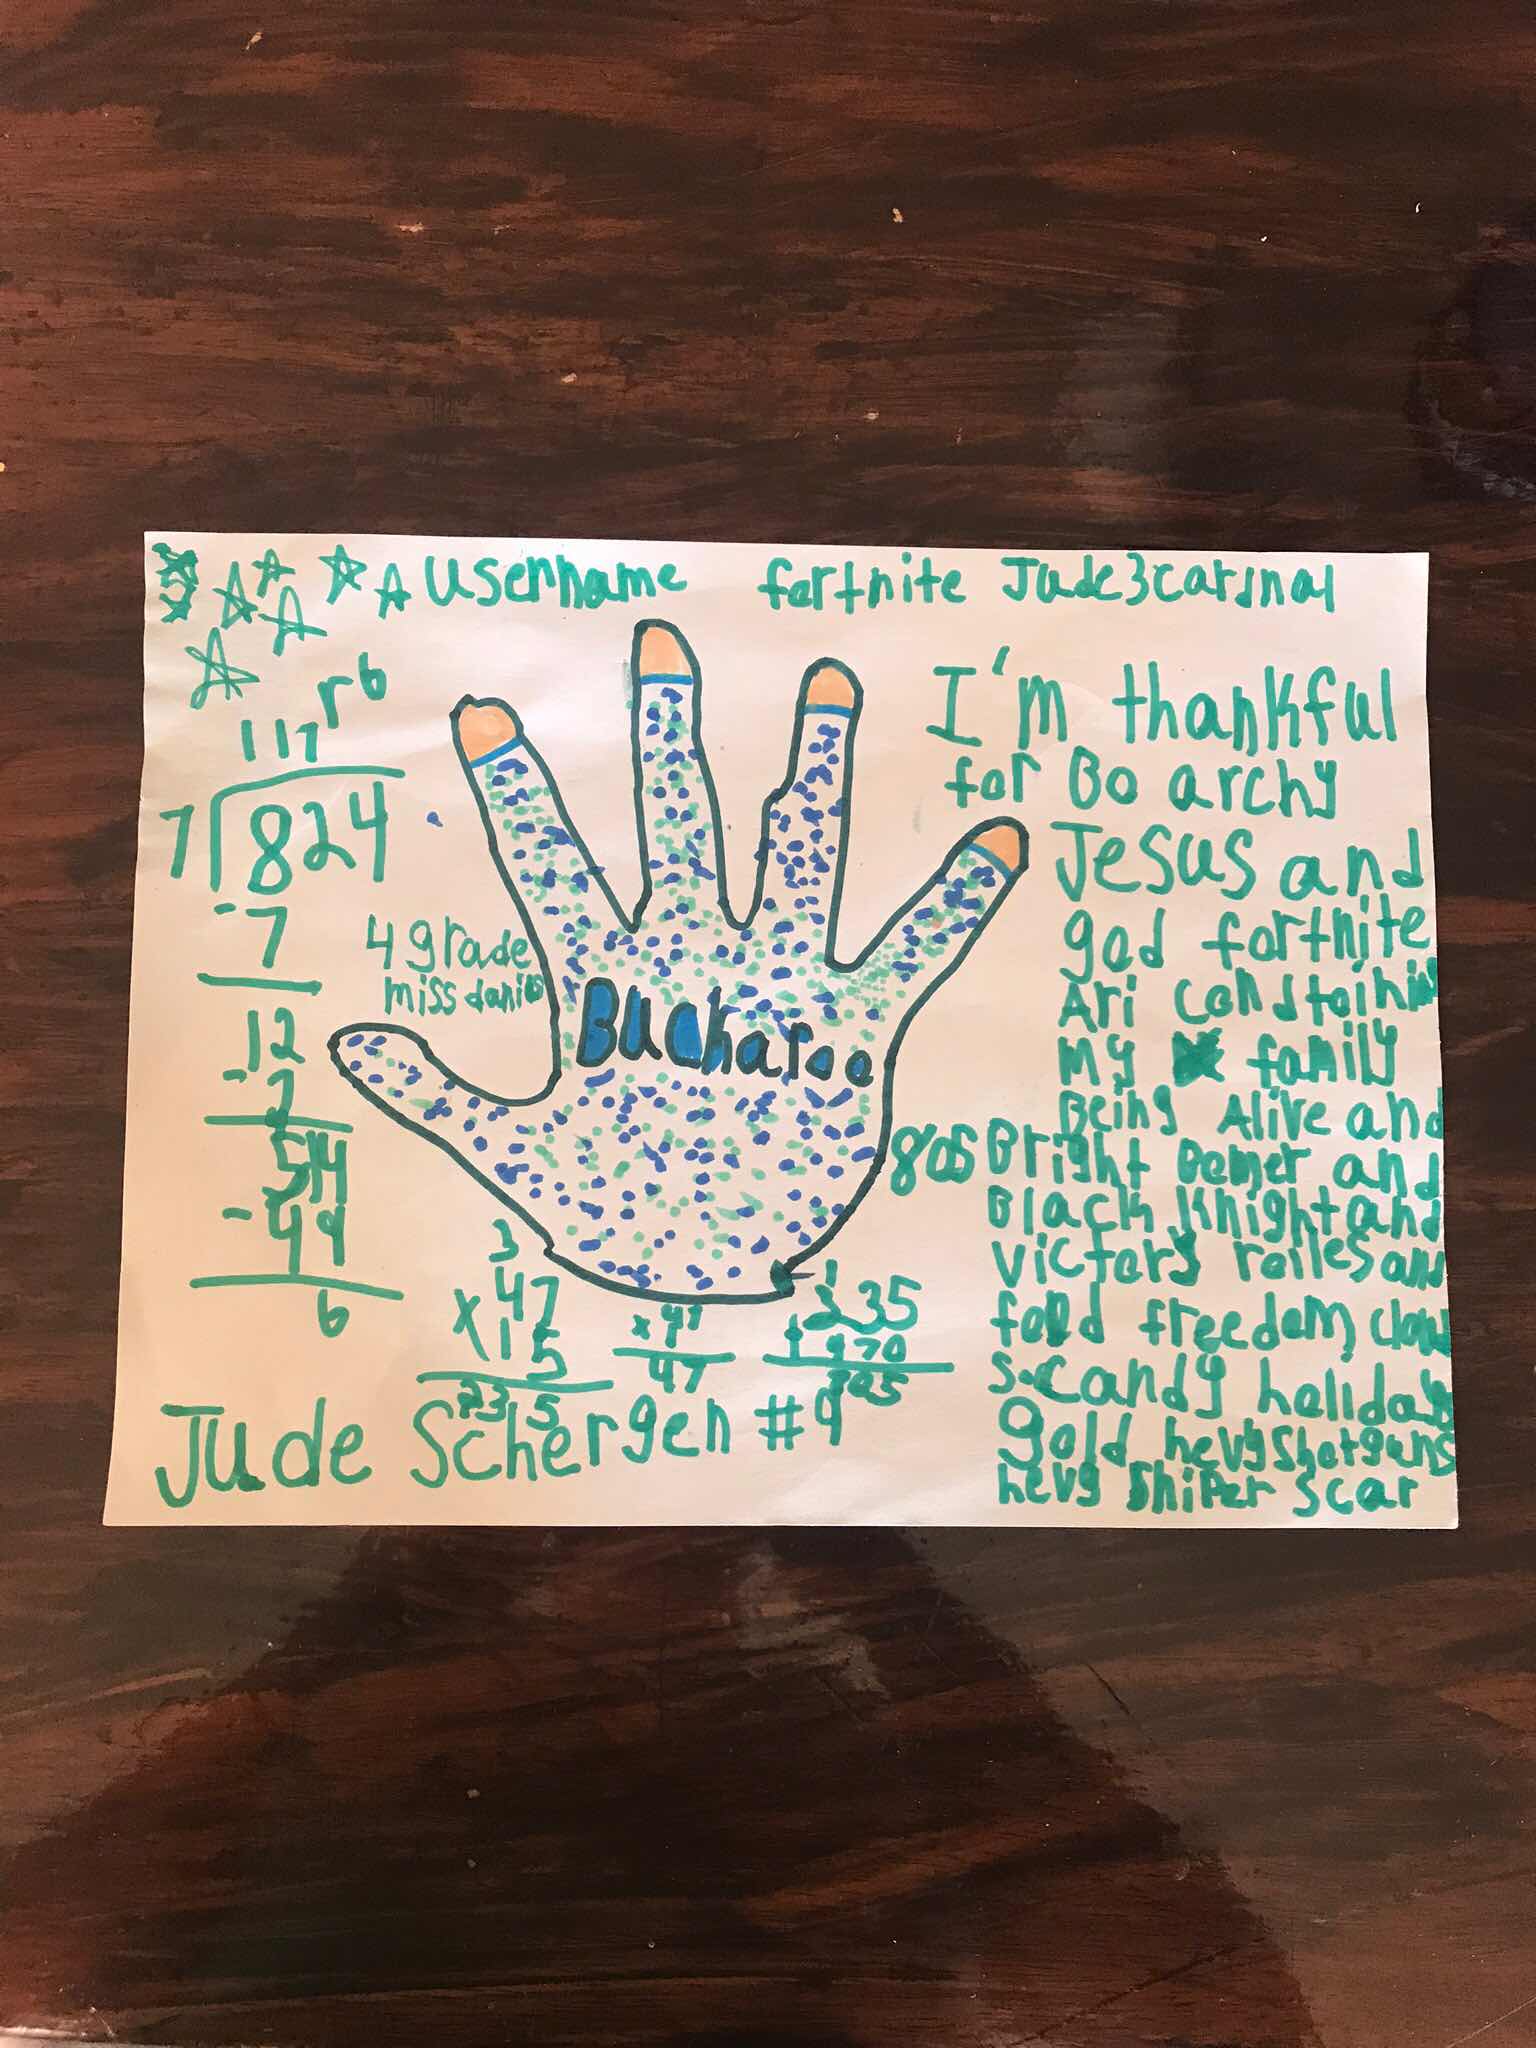 username fortnite Jude3cardnal
r6
117
7 824
-7
12
-7
54
-49
6
4 grade
miss
Bucharoo
I'm thankful
for Bo archy
Jesus and
god fortnite
Ari
my family
Being Alive and
Bright and
Black Knight and
victory and
food freedom,
candy holidays
gold hevy shotguns
hevy sniper scar
3
47
x15
235
x47
1
47
1
235
+470
705
Jude Schergen #9